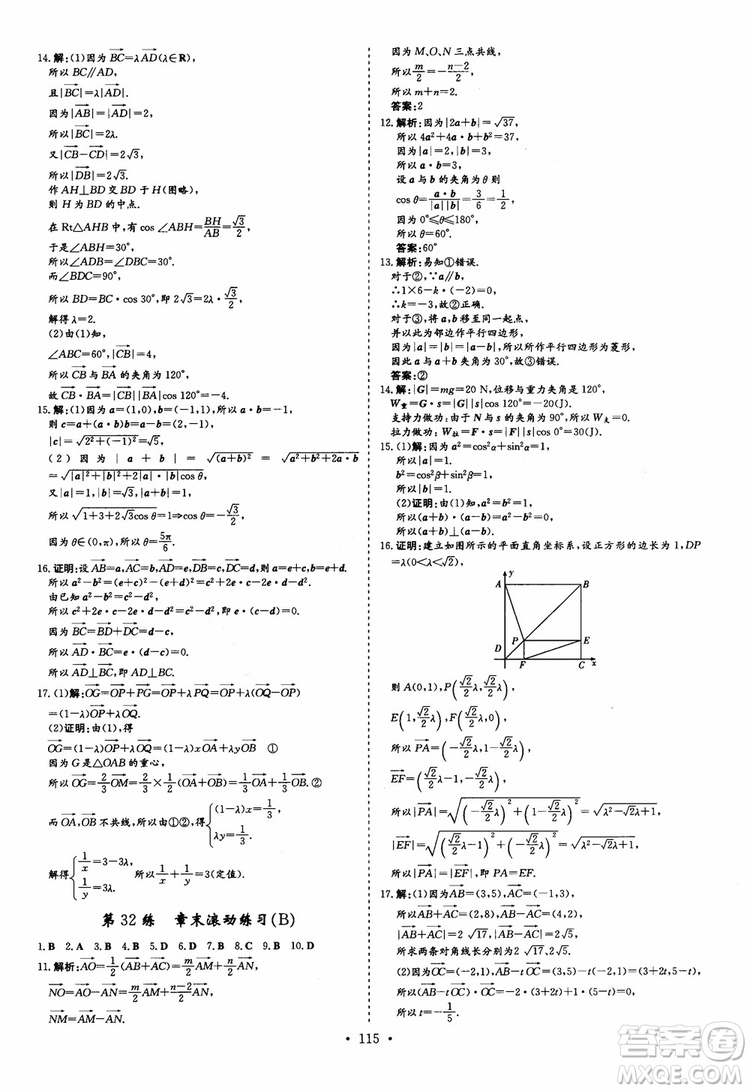 14.解:(1)因为 $\overrightarrow{BC}=\lambda\overrightarrow{AD}(\lambda\in\mathbf{R})$,
所以 BC∥AD,
且$|\overrightarrow{BC}|=\lambda|\overrightarrow{AD}|$.
因为$|\overrightarrow{AB}|=|\overrightarrow{AD}|=2$,
所以$|\overrightarrow{BC}|=2\lambda$.
又$|\overrightarrow{CB}-\overrightarrow{CD}|=2\sqrt{3}$,
所以$|\overrightarrow{DB}|=2\sqrt{3}$.
作AH⊥BD交BD于H(图略),
则 H 为BD 的中点.
在 Rt△AHB 中,有 cos∠ABH=$\frac{BH}{AB}=\frac{\sqrt{3}}{2}$,
于是∠ABH=30°,
所以∠ADB=∠DBC=30°.
而∠BDC=90°,
所以BD=BC·cos 30°,即 $2\sqrt{3}=2\lambda\cdot\frac{\sqrt{3}}{2}$,
解得λ=2.
(2)由(1)知,
∠ABC=60°,$|\overrightarrow{CB}|=4$,
所以$\overrightarrow{CB}$与$\overrightarrow{BA}$的夹角为120°,
故$\overrightarrow{CB}\cdot\overrightarrow{BA}=|\overrightarrow{CB}||\overrightarrow{BA}|$cos 120°=−4.
15.解:(1)因为 a=(1,0),b=(−1,1),所以a·b=−1,
则 c=a+(a·b)b=a−b=(2,−1),
$|c|=\sqrt{2^2+(-1)^2}=\sqrt{5}$.
(2)因为|a+b|=$\sqrt{(a+b)^2}=\sqrt{a^2+b^2+2a\cdot b}$
=$\sqrt{|a|^2+|b|^2+2|a||b|\cos\theta}$,
又|a|=1,|b|=$\sqrt{3}$,|a+b|=1,
所以$\sqrt{1+3+2\sqrt{3}\cos\theta}=1\Rightarrow\cos\theta=-\frac{\sqrt{3}}{2}$,
因为θ∈(0,π),所以θ=$\frac{5\pi}{6}$.
16.证明:设$\overrightarrow{AB}=a,\overrightarrow{AC}=b,\overrightarrow{AD}=e,\overrightarrow{DB}=c,\overrightarrow{DC}=d$,则a=e+c,b=e+d.
所以 a²−b²=(e+c)²−(e+d)²=c²+2e·c−2e·d−d².
由已知 a²−b²=c²−d²,
所以 c²+2e·c−2e·d−d²=c²−d²,即 e·(c−d)=0.
因为$\overrightarrow{BC}=\overrightarrow{BD}+\overrightarrow{DC}=d-c$,
所以$\overrightarrow{AD}\cdot\overrightarrow{BC}=e\cdot(d-c)=0$,
所以$\overrightarrow{AD}\perp\overrightarrow{BC}$,即AD⊥BC.
17.(1)解:$\overrightarrow{OG}=\overrightarrow{OP}+\overrightarrow{PG}=\overrightarrow{OP}+\lambda\overrightarrow{PQ}=\overrightarrow{OP}+\lambda(\overrightarrow{OQ}-\overrightarrow{OP})$
=$(1-\lambda)\overrightarrow{OP}+\lambda\overrightarrow{OQ}$.
(2)证明:由(1),得
$\overrightarrow{OG}=(1-\lambda)\overrightarrow{OP}+\lambda\overrightarrow{OQ}=(1-\lambda)x\overrightarrow{OA}+\lambda y\overrightarrow{OB}$ ①
因为 G 为△OAB 的重心,
所以$\overrightarrow{OG}=\frac{2}{3}\overrightarrow{OM}=\frac{2}{3}\times\frac{1}{2}(\overrightarrow{OA}+\overrightarrow{OB})=\frac{1}{3}\overrightarrow{OA}+\frac{1}{3}\overrightarrow{OB}$.②
而$\overrightarrow{OA},\overrightarrow{OB}$不共线,所以由①②,得$\begin{cases}(1-\lambda)x=\frac{1}{3}\\\lambda y=\frac{1}{3}\end{cases}$.
解得$\begin{cases}\frac{1}{x}=3-3\lambda\\\frac{1}{y}=3\lambda\end{cases}$,所以$\frac{1}{x}+\frac{1}{y}=3$(定值).
第32练 章末滚动练习(B)
1.B 2.A 3.D 4.D 5.C 6.D 7.D 8.A 9.B 10.D
11.解析:$\overrightarrow{AO}=\frac{1}{2}(\overrightarrow{AB}+\overrightarrow{AC})=\frac{m}{2}\overrightarrow{AM}+\frac{n}{2}\overrightarrow{AN}$,
$\overrightarrow{NO}=\overrightarrow{AO}-\overrightarrow{AN}=\frac{m}{2}\overrightarrow{AM}+\frac{n-2}{2}\overrightarrow{AN}$,
$\overrightarrow{NM}=\overrightarrow{AM}-\overrightarrow{AN}$.
因为 M、O、N 三点共线,
所以$\frac{m}{2}=-\frac{n-2}{2}$,
所以 m+n=2.
答案:2
12.解析:因为|2a+b|=$\sqrt{37}$,
所以4a²+4a·b+b²=37.
因为|a|=2,|b|=3,所以a·b=3,
设a与b的夹角为θ则
cos θ=$\frac{a\cdot b}{|a||b|}=\frac{3}{6}=\frac{1}{2}$.
因为0°≤θ≤180°,
所以θ=60°.
答案:60°
13.解析:易知①错误.
对于②,∵a∥b,
∴1×6−k·(−2)=0,
∴k=−3,故②正确.
对于③,将a,b移至同一起点,
并以此为邻边作平行四边形,
因为|a|=|b|,所以所作平行四边形为菱形,
所以a与a+b夹角为30°,故③错误.
答案:②
14.解:|G|=mg=20 N,位移与重力夹角为120°,
W重=G·s=|G||s|cos 120°=−20(J).
支持力做功:由于N与s的夹角为90°,所以W支=0(J).
拉力做功:W拉=F·s=|F||s|cos 0°=100(J).
15.(1)解:因为a²=cos²α+sin²α=1,
所以|a|=1.
b²=cos²β+sin²β=1,
所以|b|=1.
(2)证明:由(1)知,a²=b²=1,
所以(a+b)·(a−b)=a²−b²=0.
所以(a+b)⊥(a−b).
16.证明:建立如图所示的平面直角坐标系,设正方形的边长为1,DP
=λ(0<λ<$\sqrt{2}$),
y
A B
P E
D F C x
则A(0,1),$P\left(\frac{\sqrt{2}}{2}\lambda,\frac{\sqrt{2}}{2}\lambda\right)$,
$E\left(1,\frac{\sqrt{2}}{2}\lambda\right),F\left(\frac{\sqrt{2}}{2}\lambda,0\right)$.
所以$\overrightarrow{PA}=\left(-\frac{\sqrt{2}}{2}\lambda,1-\frac{\sqrt{2}}{2}\lambda\right)$,
$\overrightarrow{EF}=\left(\frac{\sqrt{2}}{2}\lambda-1,-\frac{\sqrt{2}}{2}\lambda\right)$.
所以$|\overrightarrow{PA}|=\sqrt{\left(-\frac{\sqrt{2}}{2}\lambda\right)^2+\left(1-\frac{\sqrt{2}}{2}\lambda\right)^2}=\sqrt{\lambda^2-\sqrt{2}\lambda+1}$,
$|\overrightarrow{EF}|=\sqrt{\left(\frac{\sqrt{2}}{2}\lambda-1\right)^2+\left(-\frac{\sqrt{2}}{2}\lambda\right)^2}=\sqrt{\lambda^2-\sqrt{2}\lambda+1}$,
所以$|\overrightarrow{PA}|=|\overrightarrow{EF}|$,即PA=EF.
17.解:(1)因为$\overrightarrow{AB}=(3,5),\overrightarrow{AC}=(-1,3)$,
所以$\overrightarrow{AB}+\overrightarrow{AC}=(2,8),\overrightarrow{AB}-\overrightarrow{AC}=(4,2)$,
$|\overrightarrow{AB}+\overrightarrow{AC}|=2\sqrt{17},|\overrightarrow{AB}-\overrightarrow{AC}|=2\sqrt{5}$,
所以所求两条对角线长分别为$2\sqrt{17},2\sqrt{5}$.
(2)因为$\overrightarrow{OC}=(-2,-1),\overrightarrow{AB}-t\overrightarrow{OC}=(3,5)-t(-2,-1)=(3+2t,5+t)$,
所以$(\overrightarrow{AB}-t\overrightarrow{OC})\cdot\overrightarrow{OC}=(3+2t,5+t)\cdot(-2,-1)=0$,
所以$t=-\frac{11}{5}$.
• 115 •
答案圈
MXQE.COM